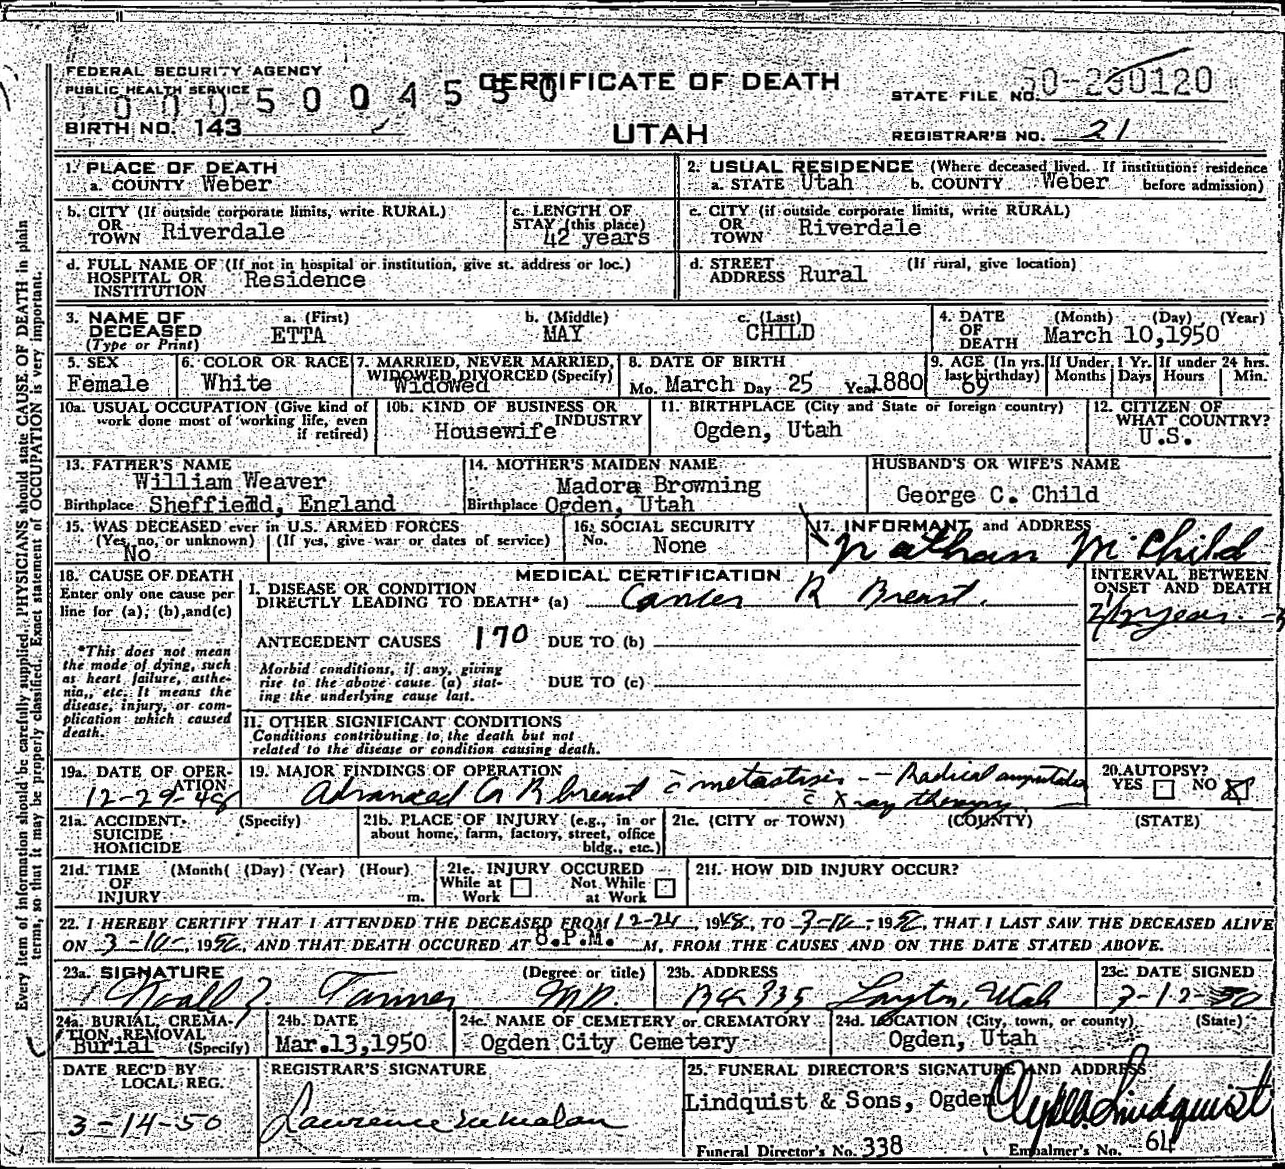 FEDERAL SECURITY AGENCY
PUBLIC HEALTH SERVICE
0 0 0 5 0 0 4 5 5 0
BIRTH NO. 143
CERTIFICATE OF DEATH
UTAH
STATE FILE NO. 50-230120
REGISTRAR'S NO. 21
Every item of information should be carefully supplied. PHYSICIANS should state CAUSE OF DEATH in plain
terms, so that it may be properly classified. Exact statement of OCCUPATION is very important.
1. PLACE OF DEATH
a. COUNTY Weber
2. USUAL RESIDENCE (Where deceased lived. If institution: residence
a. STATE Utah b. COUNTY Weber before admission)
b. CITY (If outside corporate limits, write RURAL)
OR
TOWN Riverdale
c. LENGTH OF
STAY (this place)
42 years
c. CITY (if outside corporate limits, write RURAL)
OR
TOWN Riverdale
d. FULL NAME OF (If not in hospital or institution, give st. address or loc.)
HOSPITAL OR
INSTITUTION Residence
d. STREET (If rural, give location)
ADDRESS Rural
3. NAME OF
DECEASED
(Type or Print)
a. (First)
ETTA
b. (Middle)
MAY
c. (Last)
CHILD
4. DATE (Month) (Day) (Year)
OF
DEATH March 10,1950
5. SEX
Female
6. COLOR OR RACE
White
7. MARRIED, NEVER MARRIED,
WIDOWED, DIVORCED (Specify)
Widowed
8. DATE OF BIRTH
Mo. March Day 25 Year 1880
9. AGE (In yrs.
last birthday)
69
If Under 1 Yr.
Months Days
If under 24 hrs.
Hours Min.
10a. USUAL OCCUPATION (Give kind of
work done most of working life, even
if retired)
10b. KIND OF BUSINESS OR
INDUSTRY
Housewife
11. BIRTHPLACE (City and State or foreign country)
Ogden, Utah
12. CITIZEN OF
WHAT COUNTRY?
U.S.
13. FATHER'S NAME
William Weaver
Birthplace Sheffield, England
14. MOTHER'S MAIDEN NAME
Madora Browning
Birthplace Ogden, Utah
HUSBAND'S OR WIFE'S NAME
George C. Child
15. WAS DECEASED ever in U.S. ARMED FORCES
(Yes, no, or unknown) (If yes, give war or dates of service)
No
16. SOCIAL SECURITY
No. None
17. INFORMANT and ADDRESS
Nathan M Child
18. CAUSE OF DEATH
Enter only one cause per
line for (a), (b), and (c)
*This does not mean
the mode of dying, such
as heart failure, asthe-
nia, etc. It means the
disease, injury, or com-
plication which caused
death.
MEDICAL CERTIFICATION
I. DISEASE OR CONDITION
DIRECTLY LEADING TO DEATH* (a) Cancer R Breast.
ANTECEDENT CAUSES 170 DUE TO (b)
Morbid conditions, if any, giving
rise to the above cause (a) stat-
ing the underlying cause last.
DUE TO (c)
II. OTHER SIGNIFICANT CONDITIONS
Conditions contributing to the death but not
related to the disease or condition causing death.
INTERVAL BETWEEN
ONSET AND DEATH
2 1/2 years.
19a. DATE OF OPER-
ATION
12-29-48
19. MAJOR FINDINGS OF OPERATION
Advanced Ca R breast c̄ metastasis — Radical amputation
c̄ X ray therapy
20. AUTOPSY?
YES ☐ NO ☒
21a. ACCIDENT (Specify)
SUICIDE
HOMICIDE
21b. PLACE OF INJURY (e.g., in or
about home, farm, factory, street, office
bldg., etc.)
21c. (CITY or TOWN) (COUNTY) (STATE)
21d. TIME (Month( (Day) (Year) (Hour)
OF
INJURY m.
21e. INJURY OCCURED
While at Work ☐ Not While at Work ☐
21f. HOW DID INJURY OCCUR?
22. I HEREBY CERTIFY THAT I ATTENDED THE DECEASED FROM 12-24, 1948, TO 3-10-, 1950, THAT I LAST SAW THE DECEASED ALIVE
ON 3-10-, 1950, AND THAT DEATH OCCURED AT 8.P.M. M, FROM THE CAUSES AND ON THE DATE STATED ABOVE.
23a. SIGNATURE (Degree or title)
Noall Z. Tanner M.D.
23b. ADDRESS
Box 335 Layton, Utah
23c. DATE SIGNED
3-12-50
24a. BURIAL, CREMA-
TION REMOVAL
Burial (Specify)
24b. DATE
Mar.13,1950
24c. NAME OF CEMETERY or CREMATORY
Ogden City Cemetery
24d. LOCATION (City, town, or county) (State)
Ogden, Utah
DATE REC'D BY
LOCAL REG.
3-14-50
REGISTRAR'S SIGNATURE
Lawrence
25. FUNERAL DIRECTOR'S SIGNATURE AND ADDRESS
Lindquist & Sons, Ogden Lindquist
Funeral Director's No. 338 Embalmer's No. 614